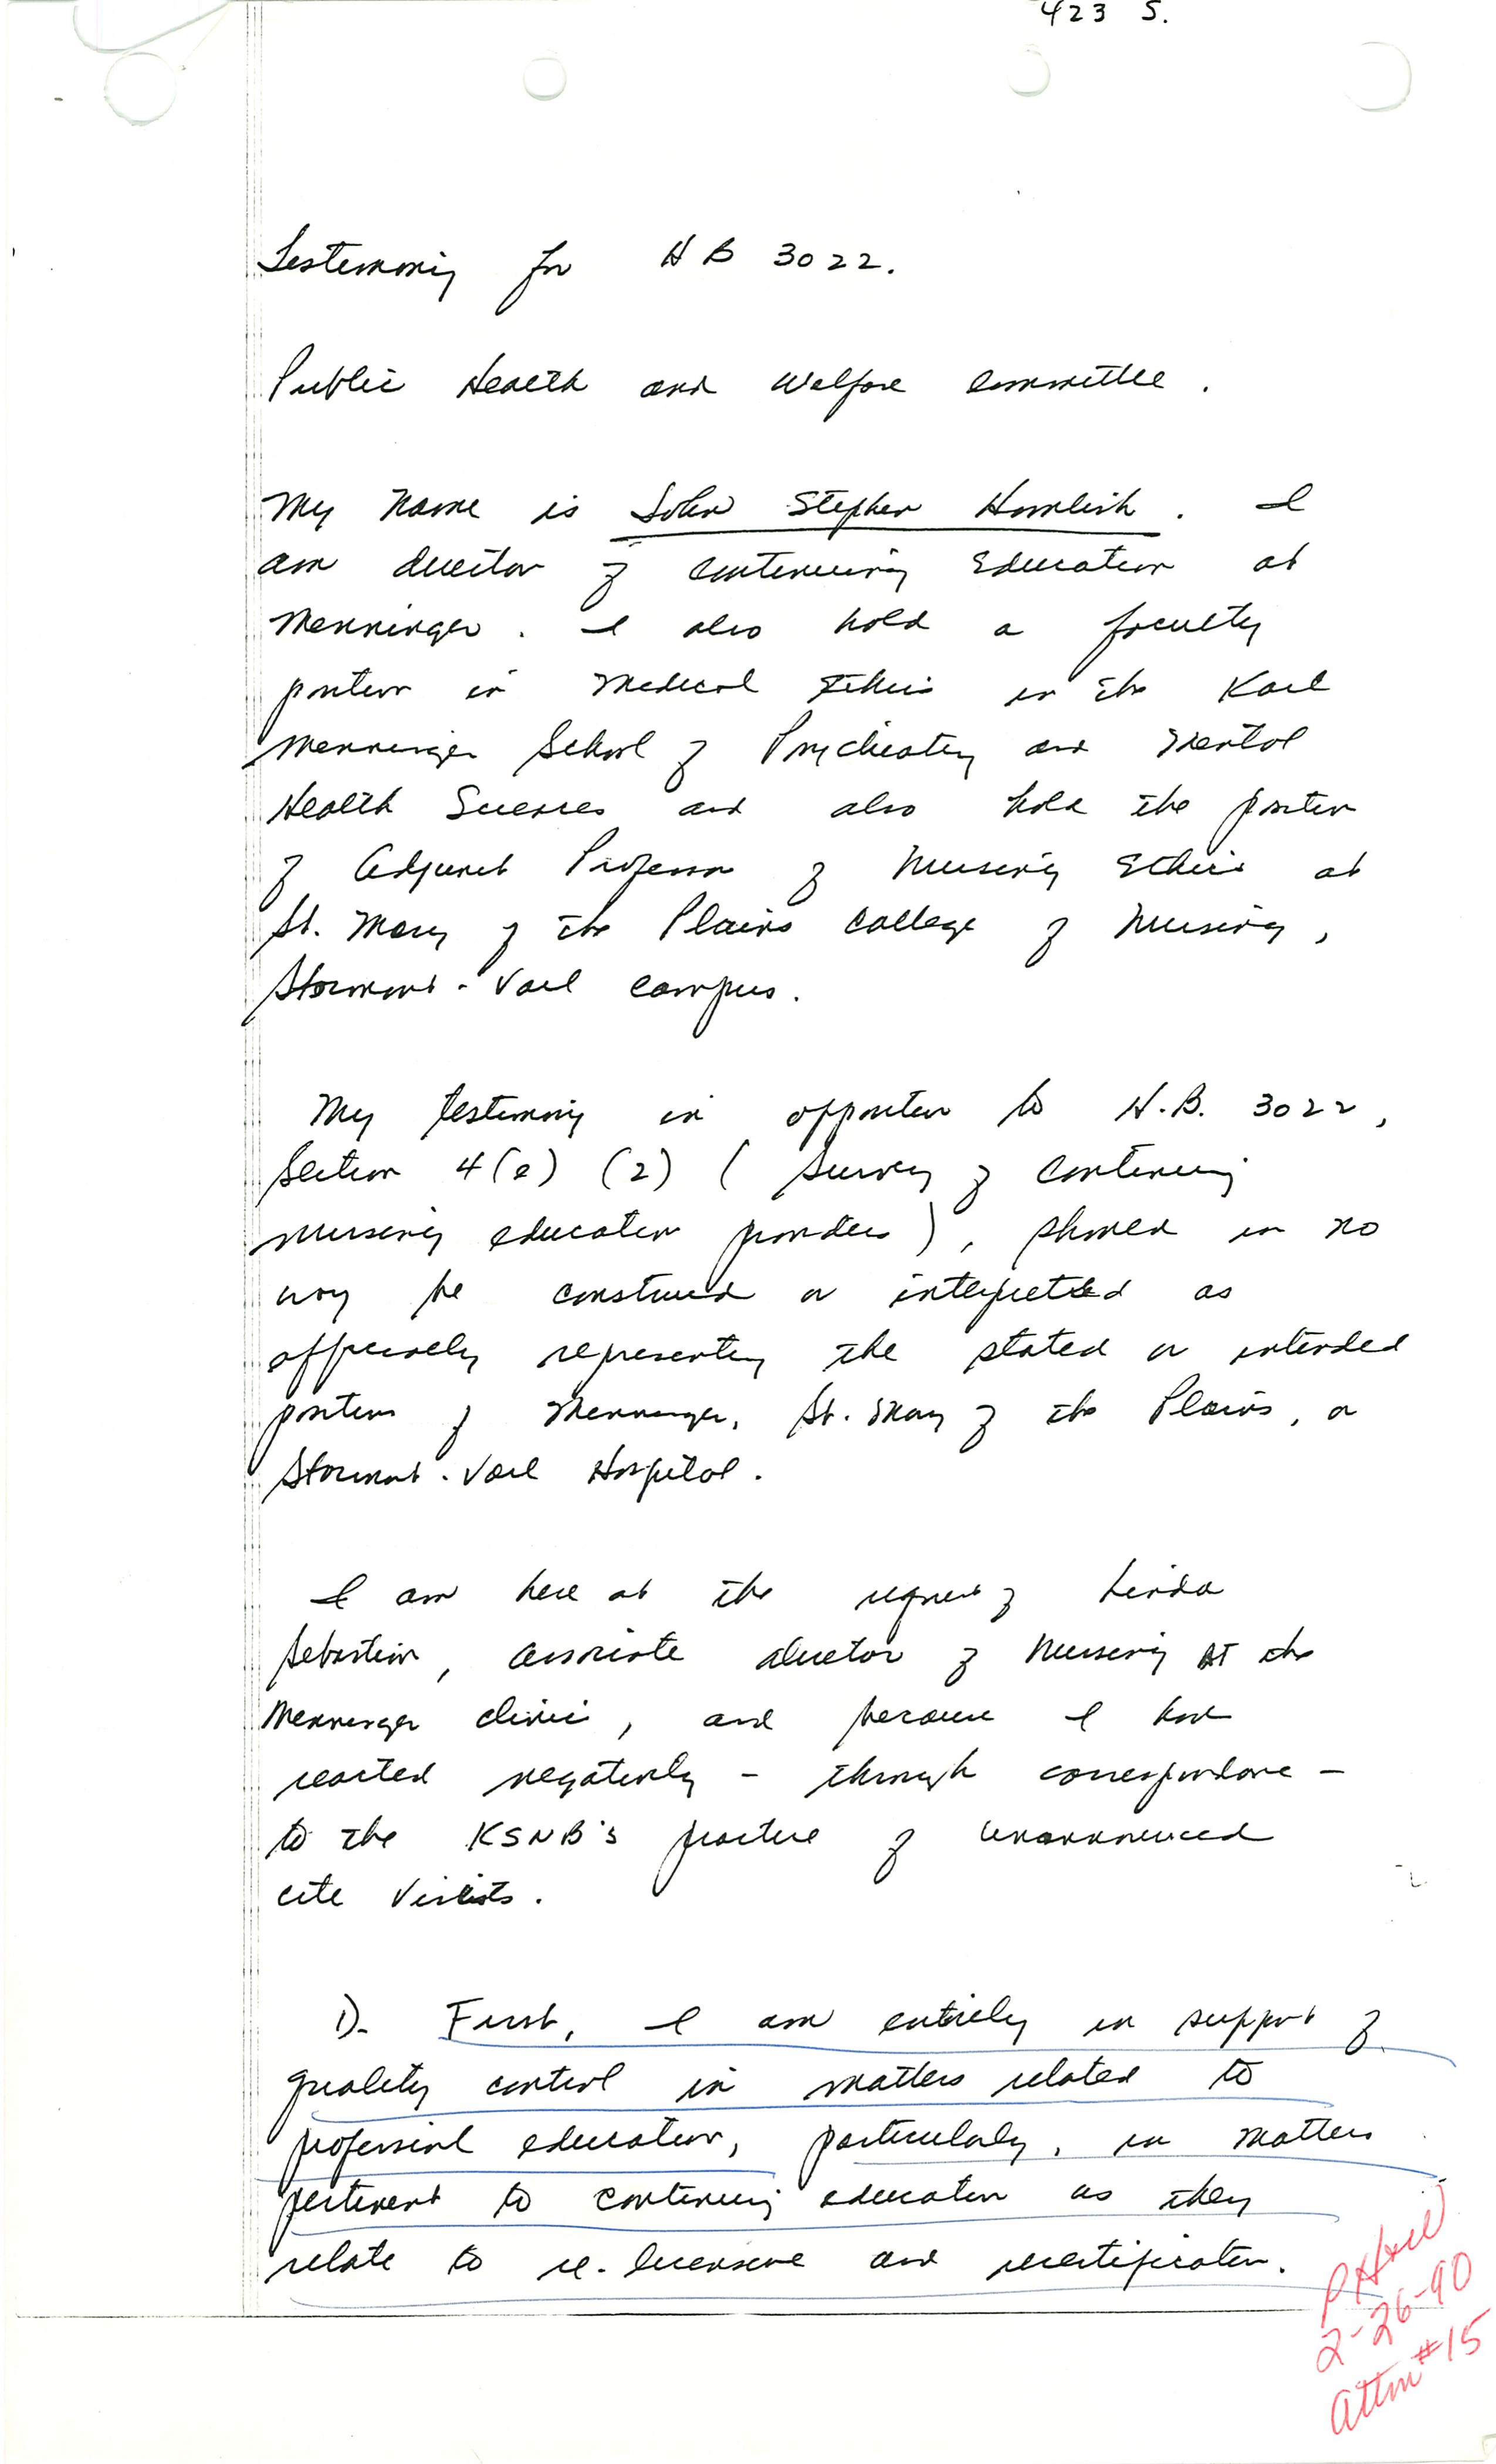 423 S.
Testimony for HB 3022.
Public Health and Welfare Committee.
My name is John Stephen Homlish. I
am director of Continuing Education at
Menninger. I also hold a faculty
position in Medical Ethics in the Karl
Menninger School of Psychiatry and Mental
Health Sciences and also hold the position
of Adjunct Professor of Nursing Ethics at
St. Mary of the Plains College of Nursing,
Stormont-Vail campus.
My testimony in opposition to H.B. 3022,
Section 4(e) (2) ( survey of continuing
nursing education providers), should in no
way be construed or interpreted as
officially representing the stated or intended
position of Menninger, St. Mary of the Plains, or
Stormont-Vail Hospital.
I am here at the request of Linda
Sebastian, associate director of Nursing AT the
Menninger clinic, and because I have
reacted negatively - through correspondence -
to the KSNB's practice of unannounced
cite visits.
1). First, I am entirely in support of
quality control in matters related to
professional education, particularly, in matters
pertinent to continuing education as they
relate to re-licensure and recertification.
PH&W
2-26-90
Attm #15